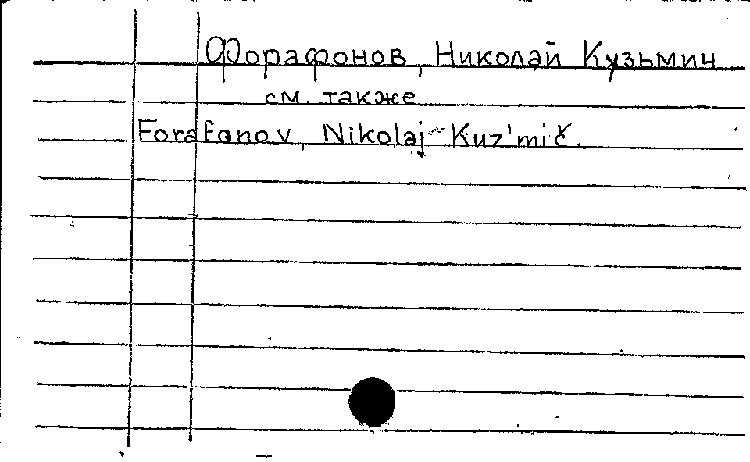 Форафонов, Николай Кузьмич
см. также
Forafonov, Nikolaj Kuz'mič.